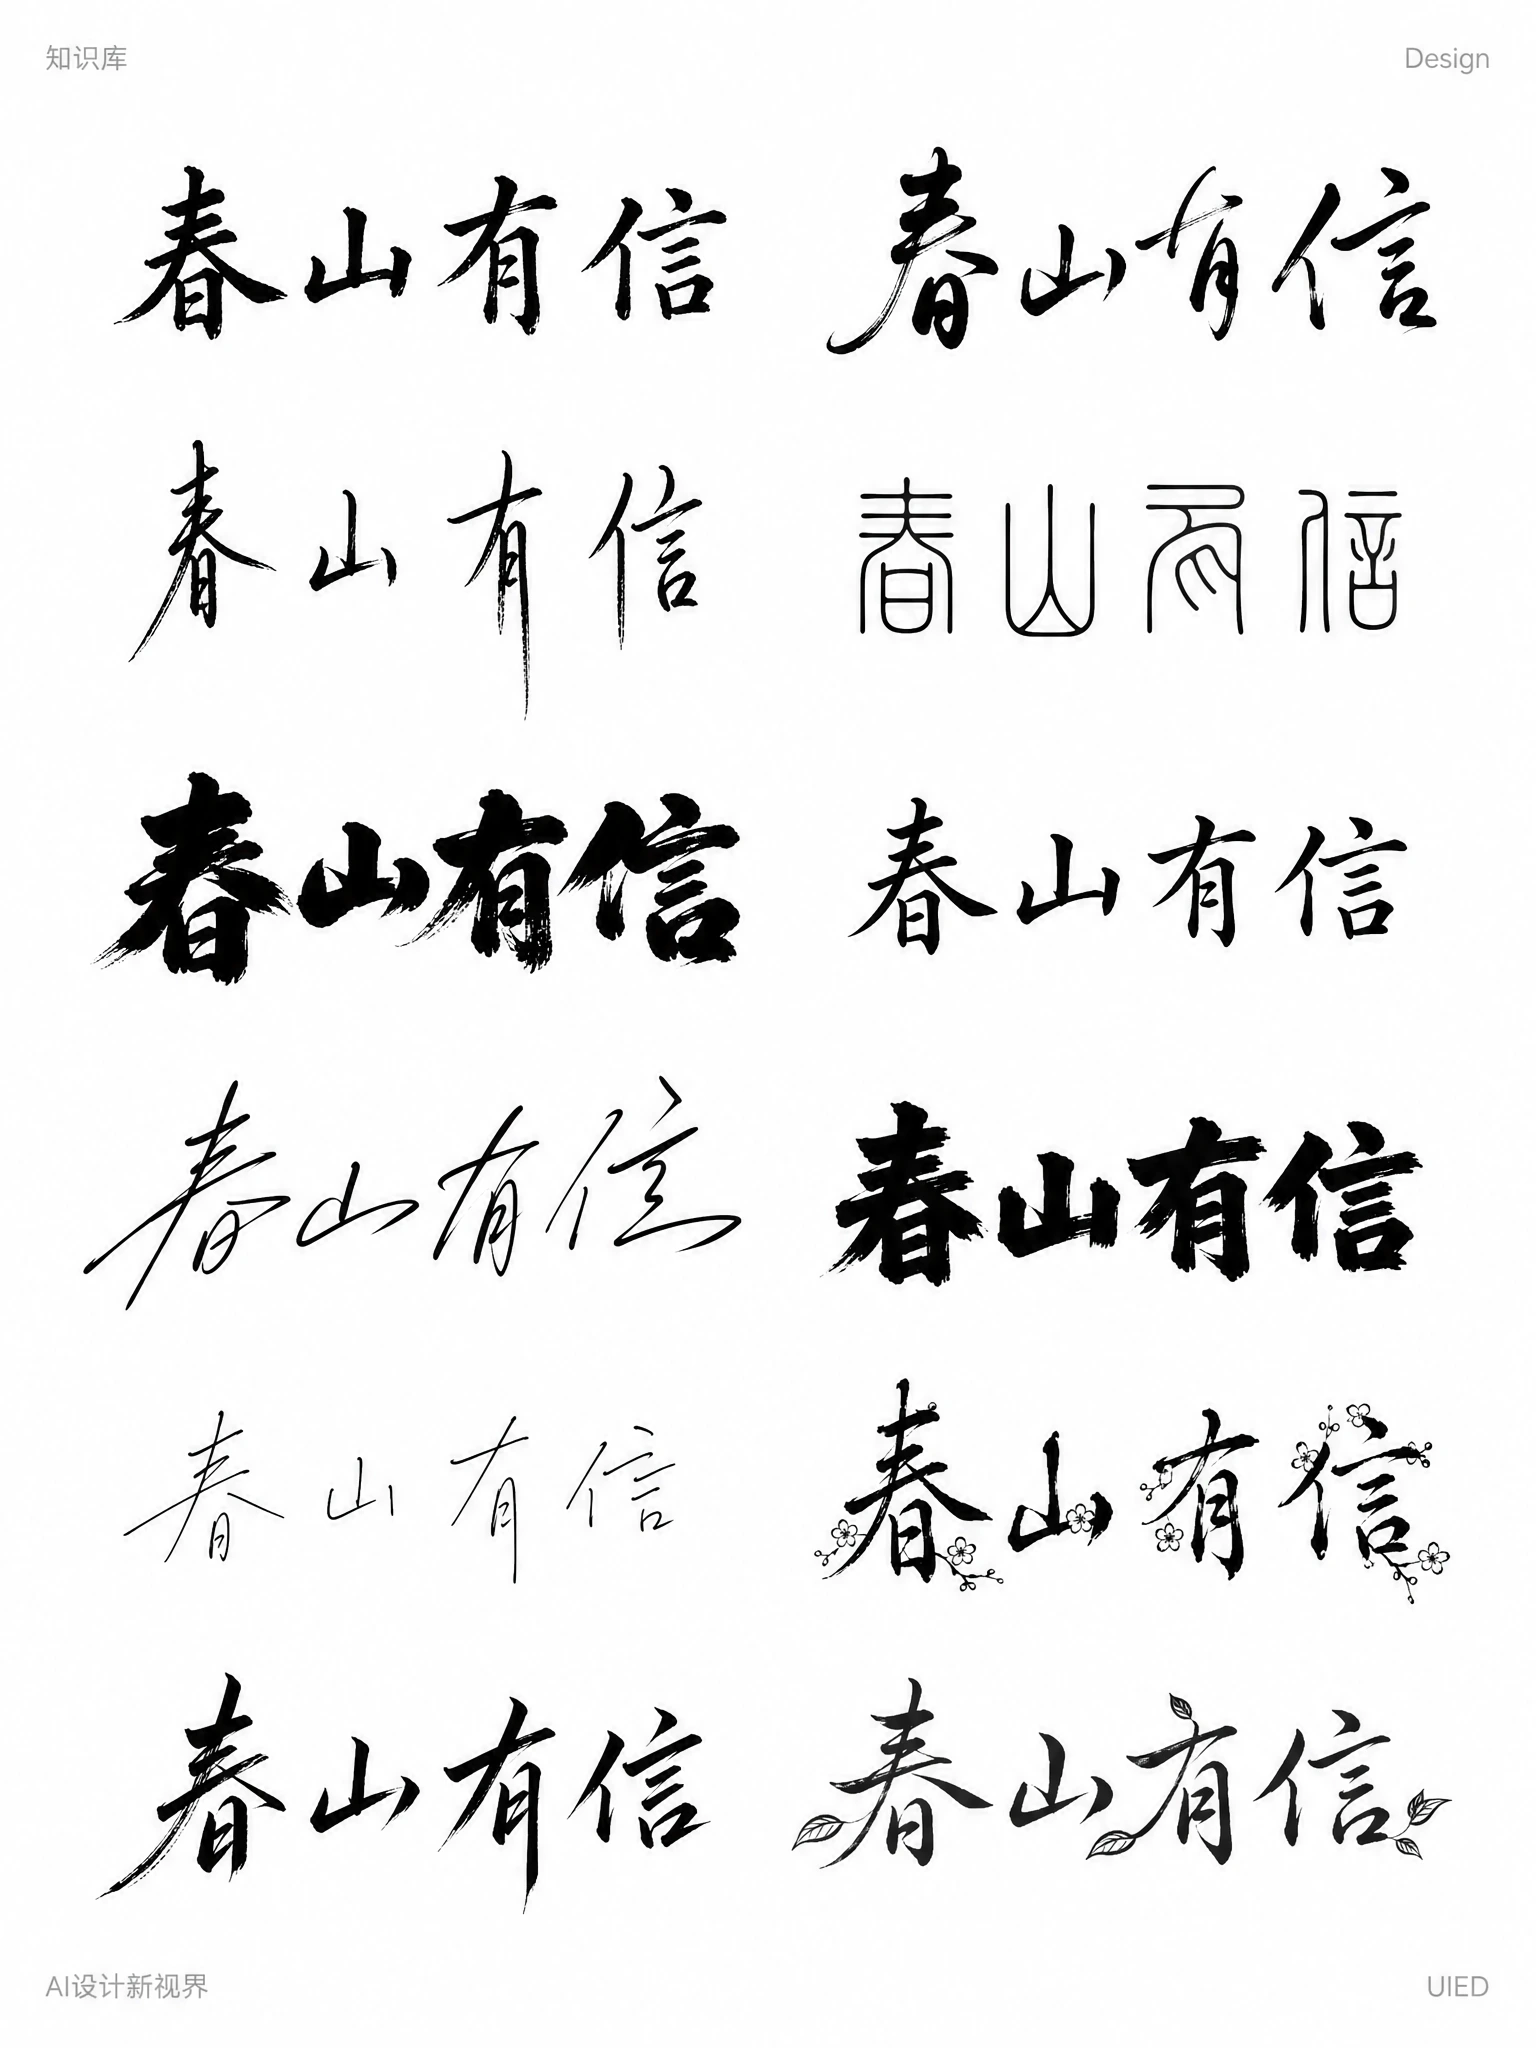 知识库 Design
春山有信 春山有信
春山有信 春山有信
春山有信 春山有信
春山有信 春山有信
春山有信 春山有信
春山有信 春山有信
AI设计新视界 UIED